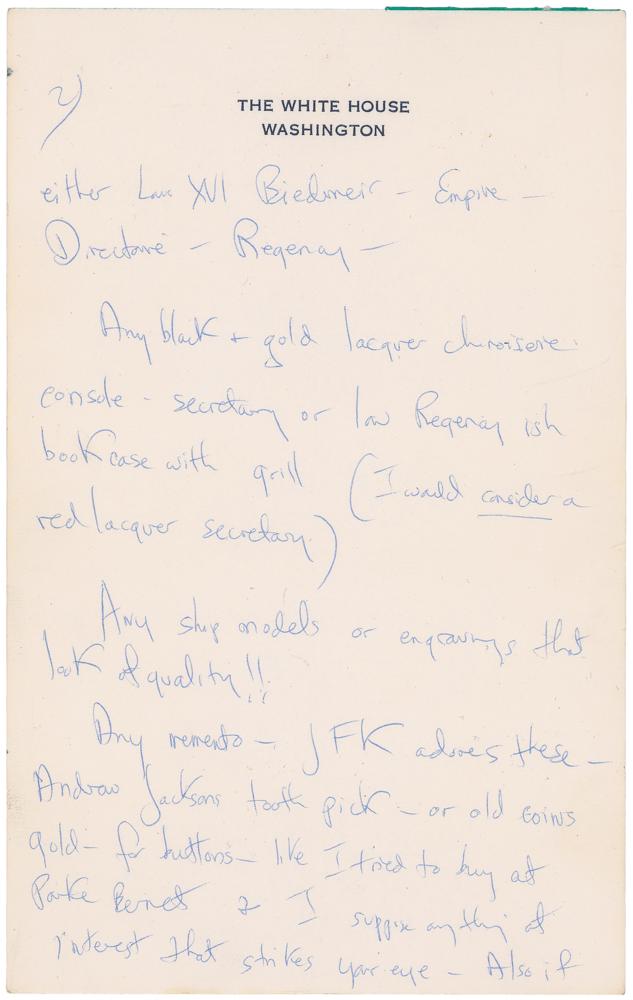 2)
THE WHITE HOUSE
WASHINGTON
either Louis XVI Biedmeir – Empire –
Directoire – Regency –
Any black + gold lacquer chinoiserie
console - secretary or low Regency ish
bookcase with grill (I would consider a
red lacquer secretary)
Any ship models or engravings that
look of quality!!
Any memento – JFK adores these –
Andrew Jacksons tooth pick – or old coins
gold – for buttons – like I tried to buy at
Parke Bernet & I suppose anything of
interest that strikes your eye – Also if